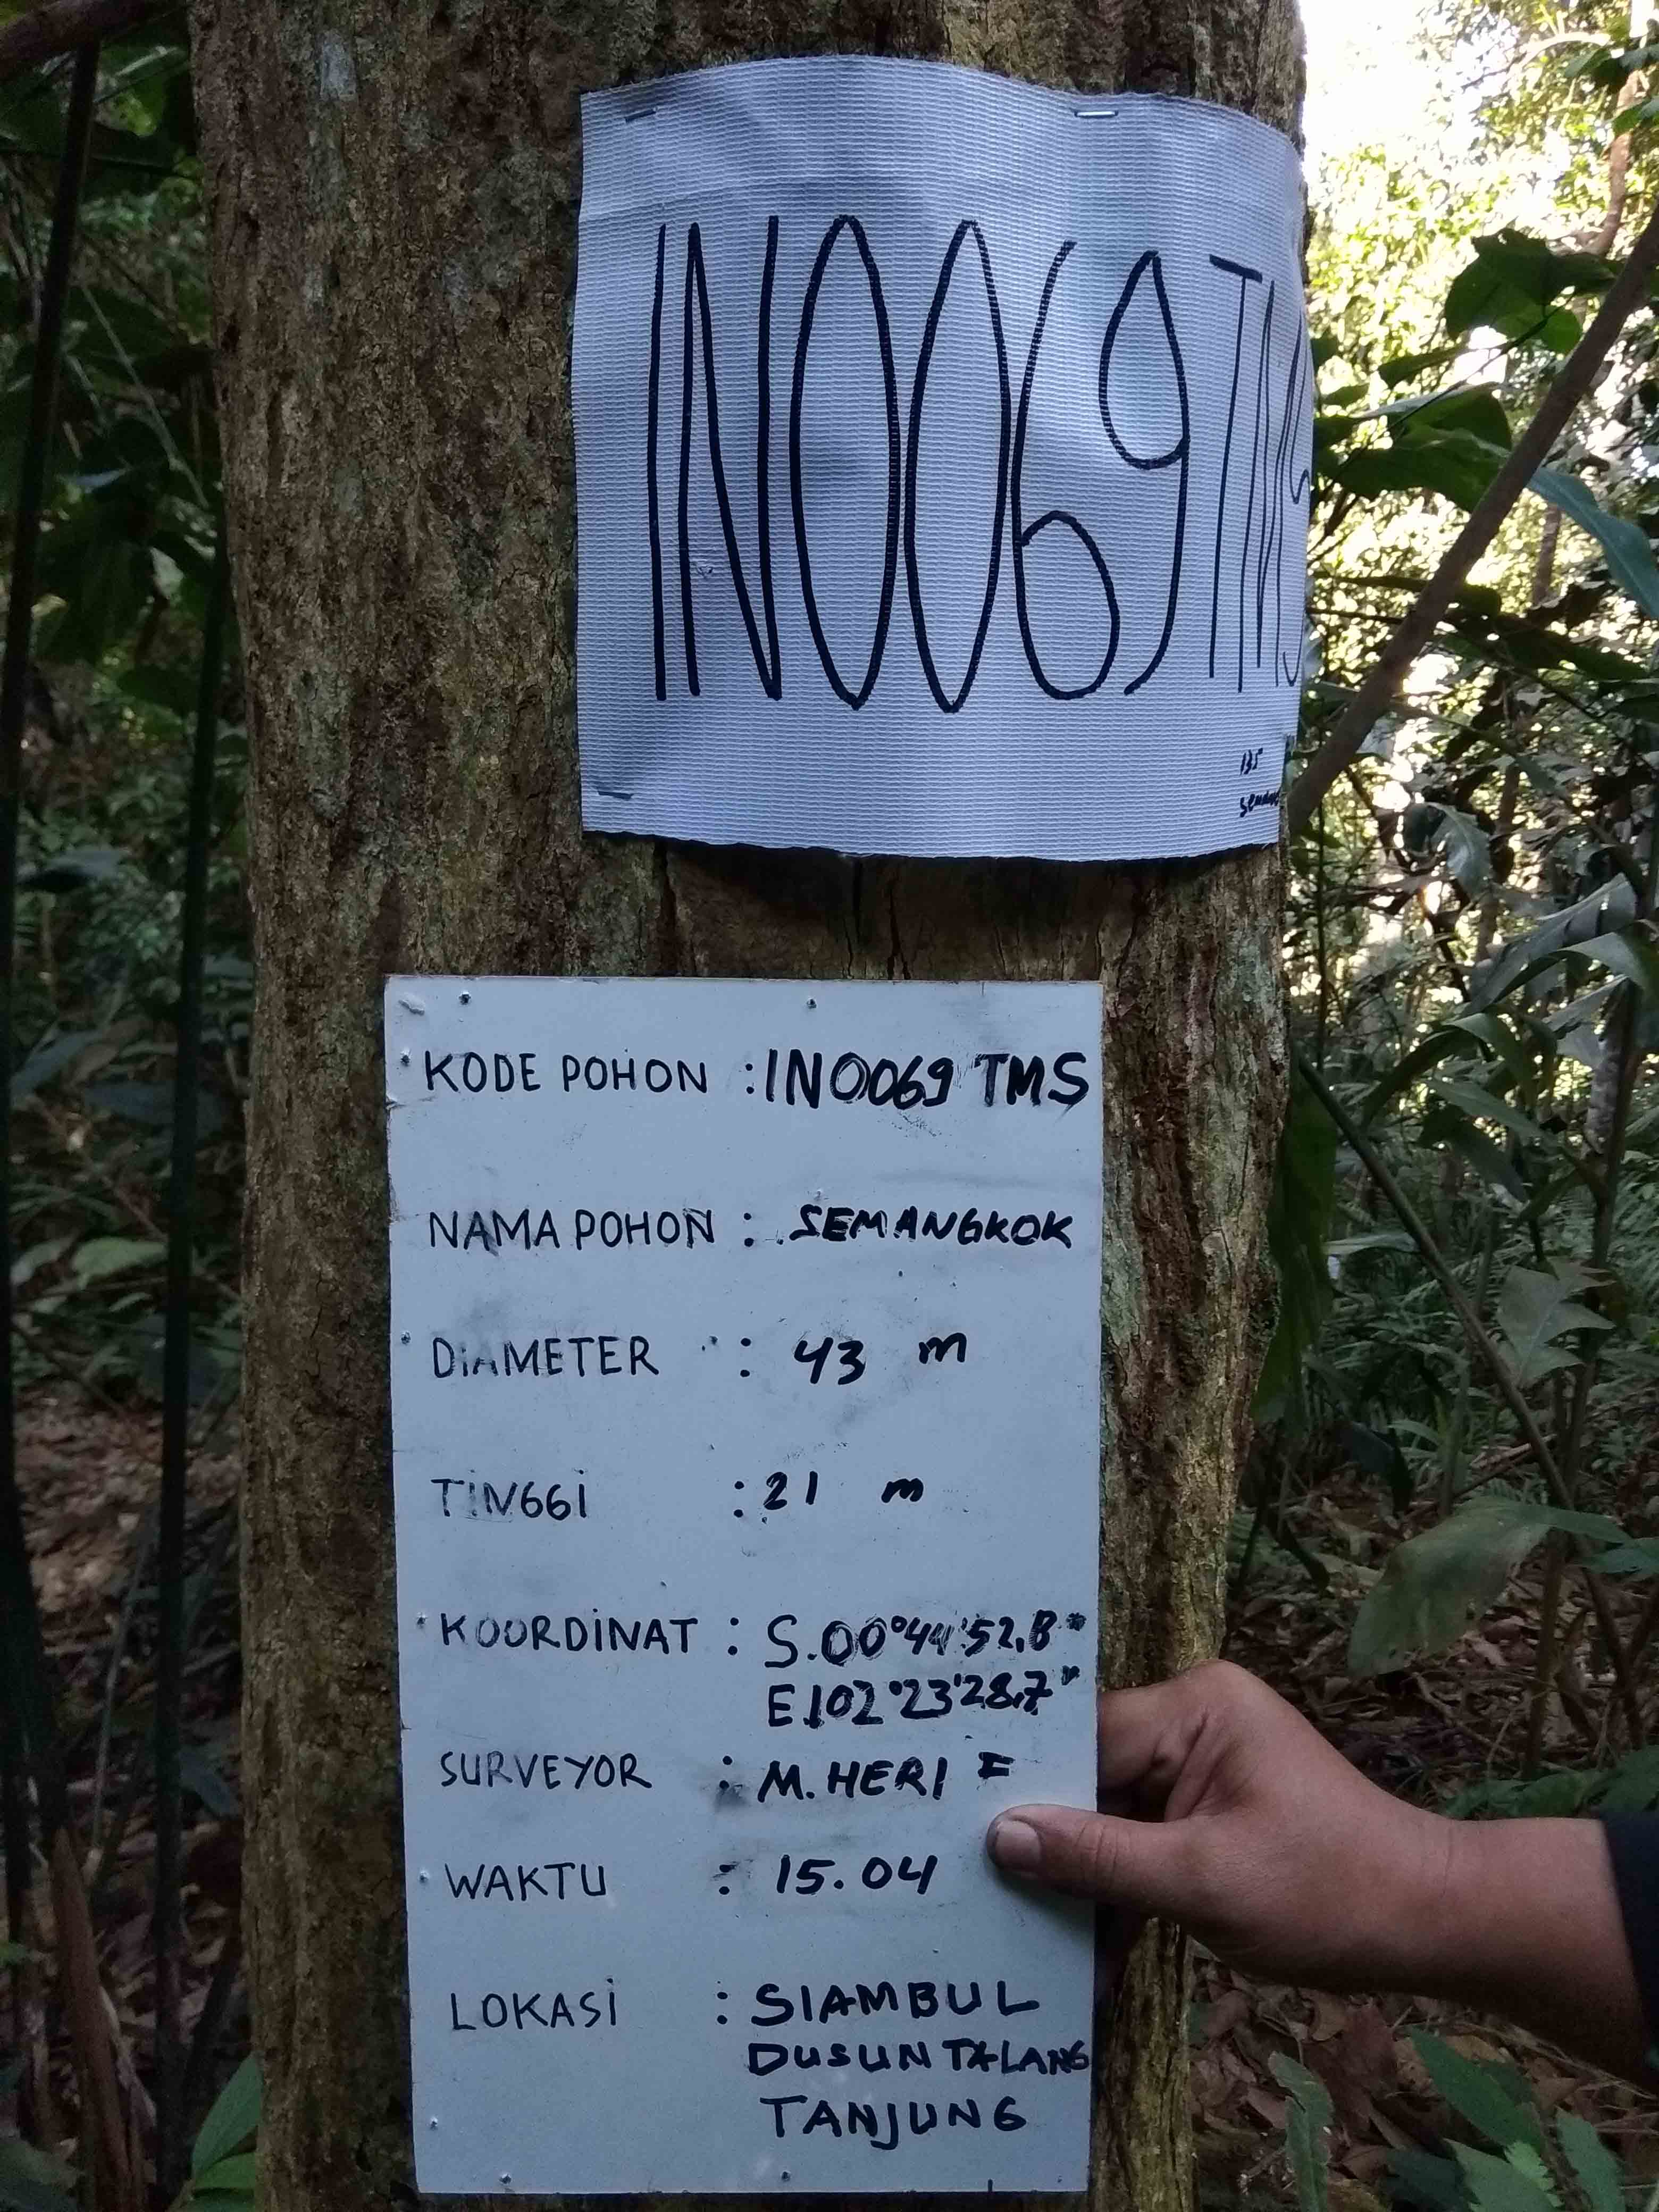 IN0069 TMS
135
KODE POHON : IN0069 TMS
NAMA POHON : SEMANGKOK
DIAMETER : 43 m
TINGGI : 21 m
KOORDINAT : S.00°44'52,8"
E102°23'28,7"
SURVEYOR : M.HERI F
WAKTU : 15.04
LOKASI : SIAMBUL
DUSUN TALANG
TANJUNG